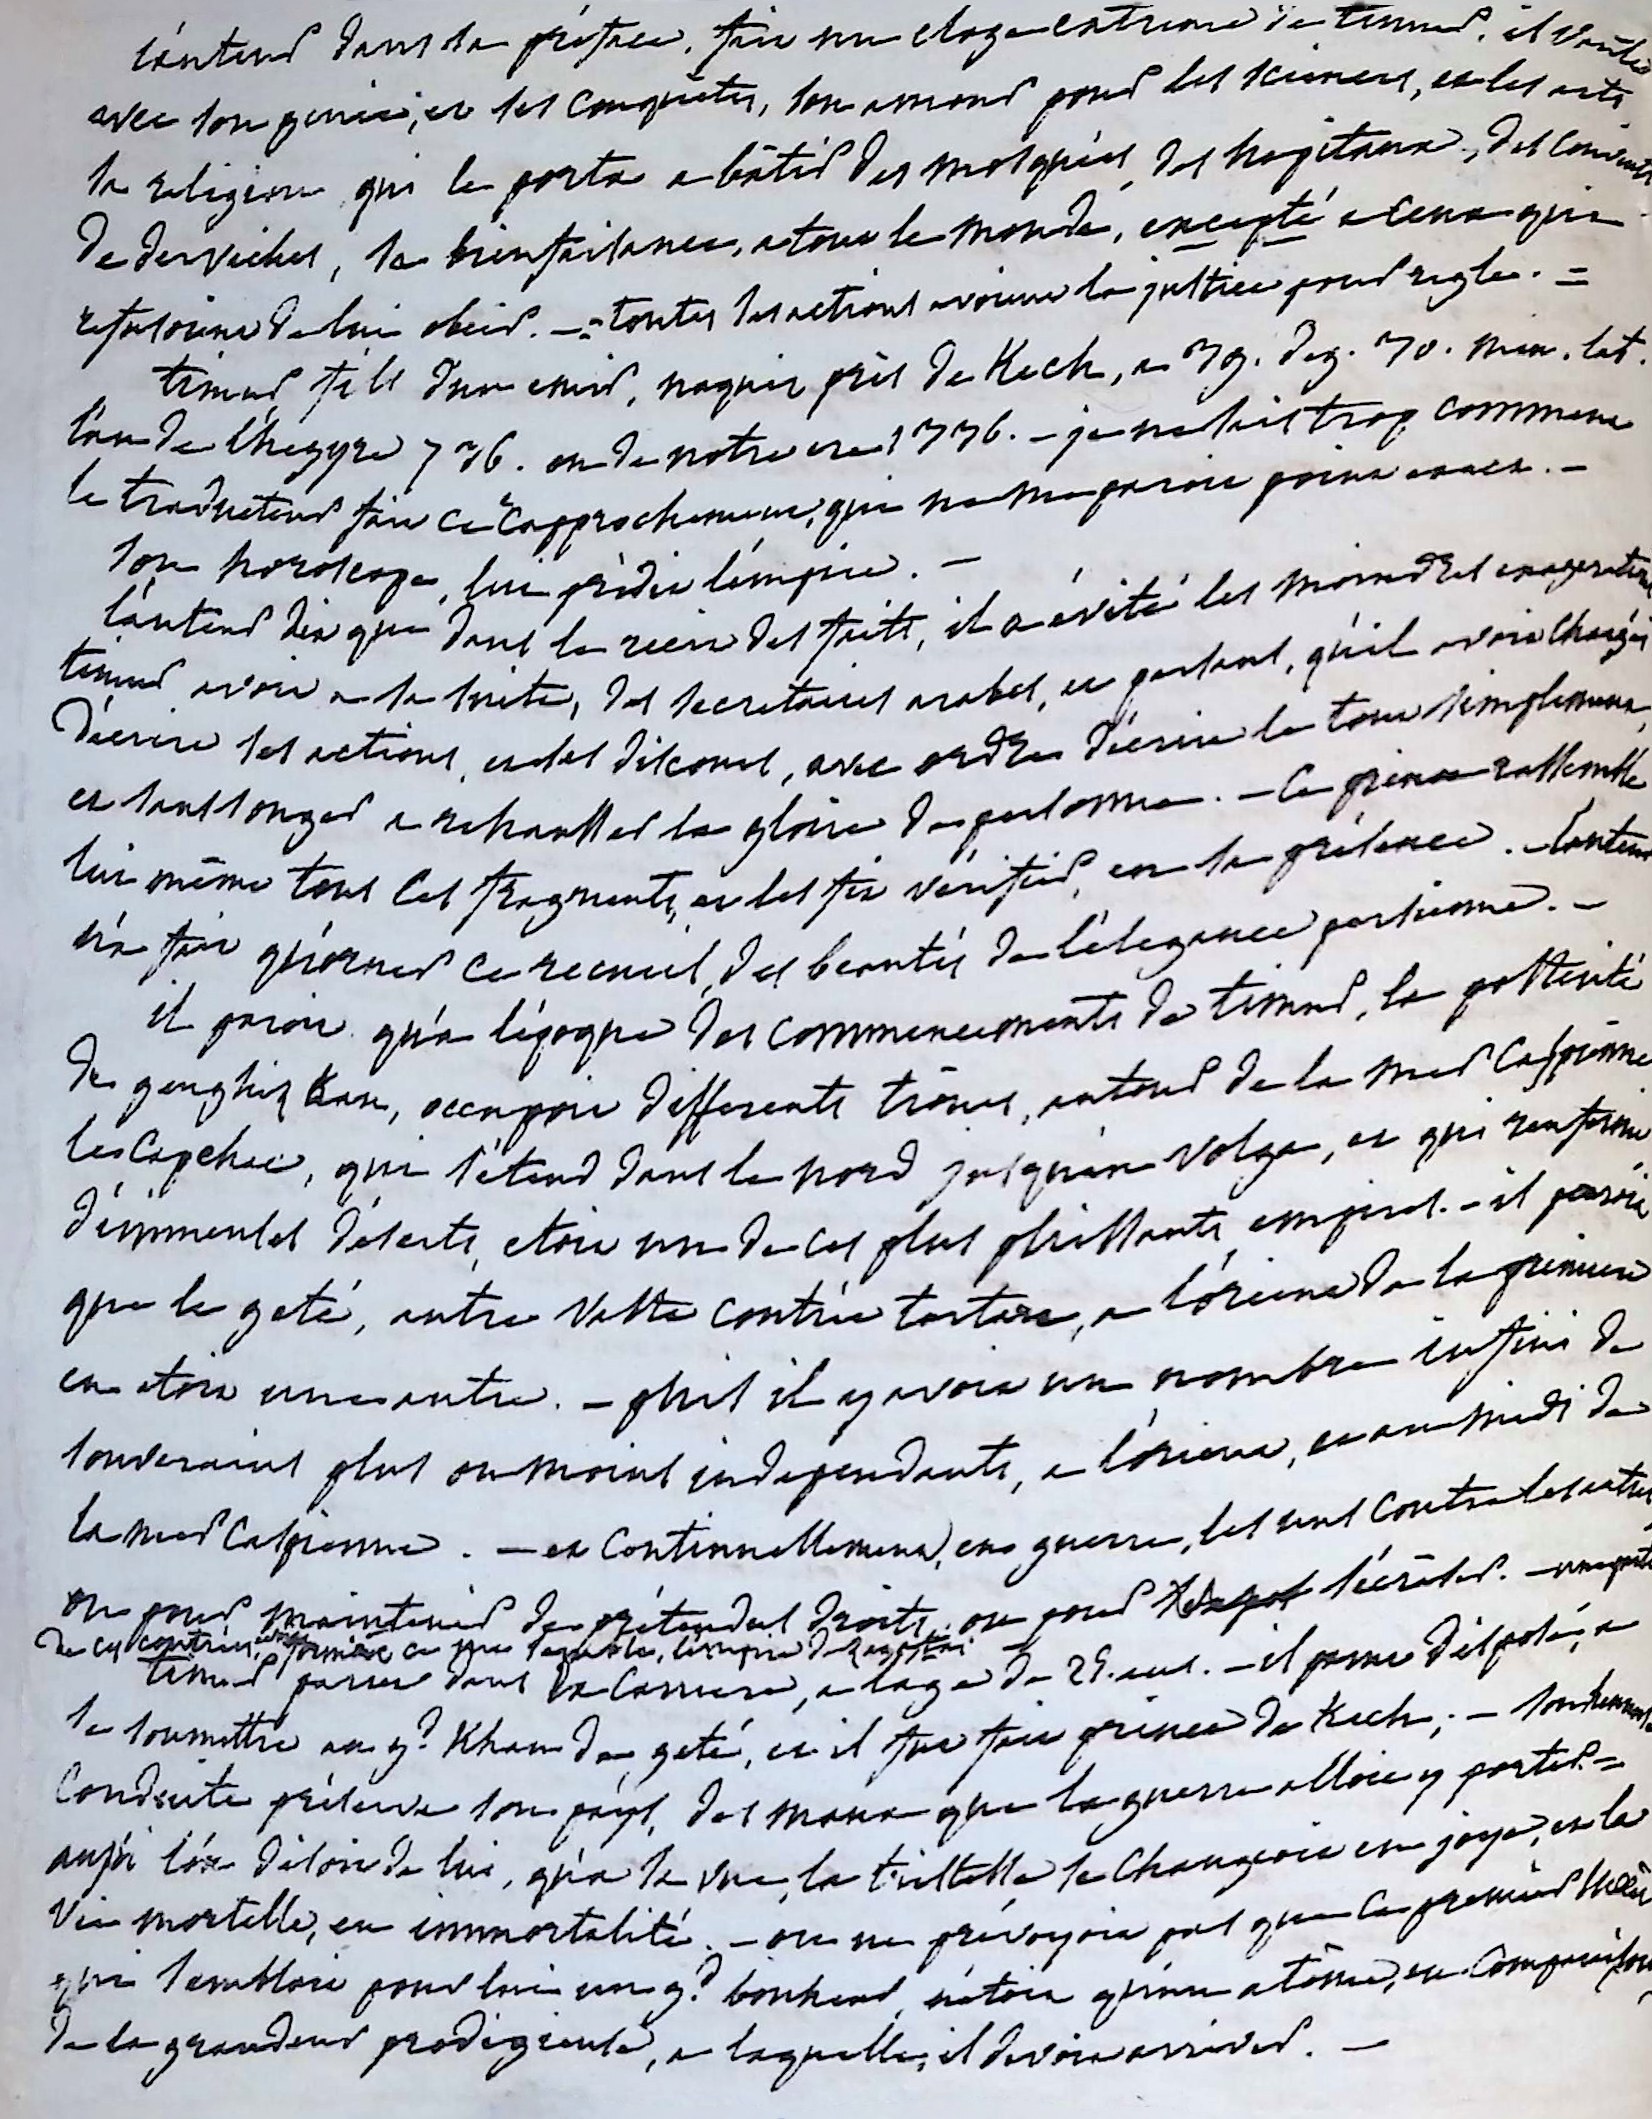 l'auteur dans sa préface, fait un eloge extreme de timur. il vante
avec son genie, et ses conquêtes, son amour pour les sciences, et les arts
sa religion qui le porta a bâtir des mosquées, des hopitaux, des couvents
de derviches, sa bienfaisance, a tout le monde, excepté a ceux qui
refusoient de lui obeir. — = toutes ses actions avoient la justice pour regle. =
timur fils d'un emir, naquit près de Kech, a 39. deg. 30. min. lat.
l'an de l'hegyre 736. ou de notre ere 1336. — je ne sais trop comment
le traducteur fait ce rapprochement, qui ne me paroit point exact. —
son horoscope, lui prédit l'empire. —
l'auteur dit que dans le recit des faits, il a évité les moindres exagerations
timur avoit a sa suite, des secretaires arabes, et persans, qu'il avoit chargés
d'écrire ses actions, et ses discours, avec ordre d'écrire le tout simplement,
et sans songer a rehausser la gloire de personne. — Ce prince rassembla
lui même tous ces fragments, et les fit vérifier, en sa présence. — l'auteur
n'a fait qu'orner ce recueil, des beautés de l'élegance persienne. —
il paroit qu'a l'époque des commencements de timur, la postérité
de genghiz kan, occupoit differents trônes, autour de la mer Caspienne
le Capchac, qui s'étend dans le nord jusqu'au Volga, et qui renferme
d'immenses déserts, etoit un de ces plus puissants empires. — il paroit
que le geté, autre vaste contrée tartare, a l'orient de la premiere
en etoit une autre. — puis il y avoit un nombre infini de
souverains plus ou moins independants, a l'orient, et au midi de
la mer Caspienne. — et continuellement, en guerre, les uns contre les autres
ou pour maintenir de prétendus droits, ou pour s'écraser. — une partie
de ces contrées, formoit ce que l'empire de zagatai
timur parut dans la Carriere, a l'age de 25. ans. — il parut disposé, a
se soumettre au gd. Khan de geté, et il fut fait prince de Kech; — son
Conduite préserva son païs, des maux que la guerre alloit y porter. =
aussi l'on disoit de lui, qu'a sa vue, la tristesse se changeoit en joye, et la
vie mortelle, en immortalité. — on ne prévoyoit pas que ce premier succès
qui sembloit pour lui un gd. bonheur, n'étoit qu'un atôme, en comparaison
de la grandeur prodigieuse, a laquelle, il devoit arriver. —